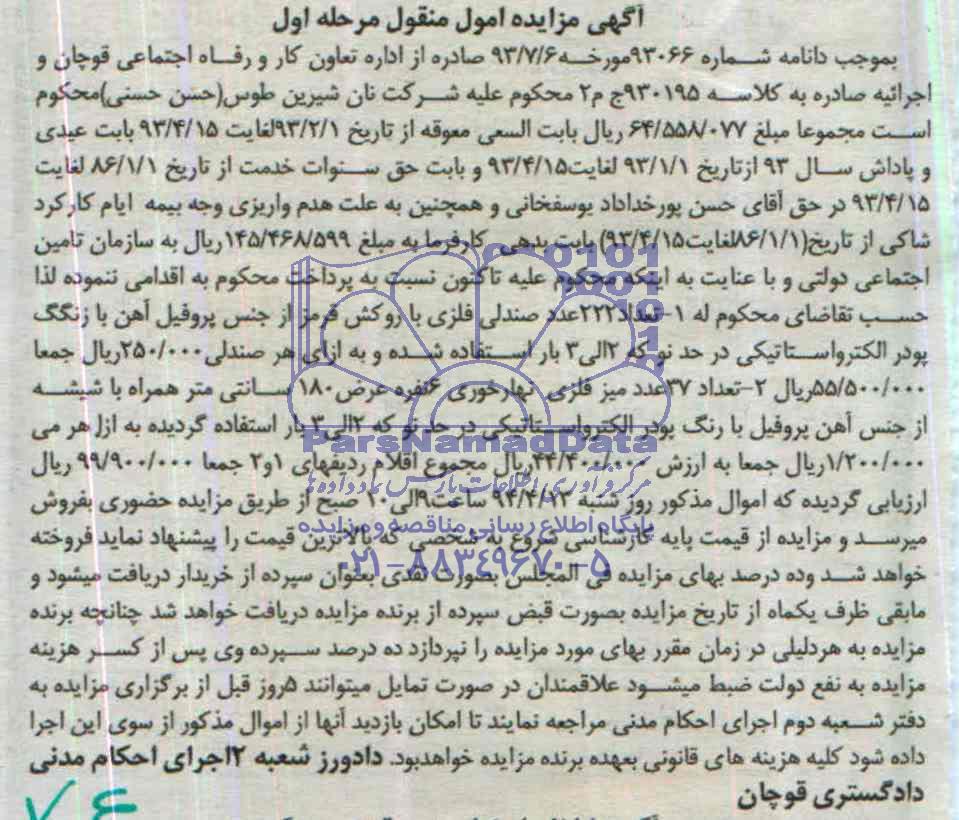 آگهی مزایده اموال منقول مرحله اول
بموجب دانامه شماره ۹۳۰۶۶مورخه۹۳/۷/۶ صادره از اداره تعاون کار و رفاه اجتماعی قوچان و
اجرائیه صادره به کلاسه ۹۳۰۱۹۵ج م۲ محکوم علیه شرکت نان شیرین طوس(حسن حسنی)محکوم
است مجموعا مبلغ ۶۴/۵۵۸/۰۷۷ ریال بابت السعی معوقه از تاریخ ۹۳/۲/۱لغایت ۹۳/۴/۱۵ بابت عیدی
و پاداش سال ۹۳ ازتاریخ ۹۳/۱/۱ لغایت۹۳/۴/۱۵ و بابت حق سنوات خدمت از تاریخ ۸۶/۱/۱ لغایت
۹۳/۴/۱۵ در حق آقای حسن پورخداداد یوسفخانی و همچنین به علت هدم واریزی وجه بیمه ایام کارکرد
شاکی از تاریخ(۸۶/۱/۱لغایت۹۳/۴/۱۵) بابت بدهی کارفرما به مبلغ ۱۴۵/۴۶۸/۵۹۹ریال به سازمان تامین
اجتماعی دولتی و با عنایت به اینکه محکوم علیه تاکنون نسبت به پرداخت محکوم به اقدامی ننموده لذا
حسب تقاضای محکوم له ۱-تعداد۲۲۲عدد صندلی فلزی با روکش قرمز از جنس پروفیل آهن با زنگگ
پودر الکترواستاتیکی در حد نو که ۲الی۳ بار استفاده شده و به ازای هر صندلی۲۵۰/۰۰۰ریال جمعا
۵۵/۵۰۰/۰۰۰ریال ۲-تعداد ۳۷عدد میز فلزی نهارخوری ۶نفره عرض ۱۸۰ سانتی متر همراه با شیشه
از جنس آهن پروفیل با رنگ پودر الکترواستاتیکی در حد نو که ۲الی۳ بار استفاده گردیده به ازا هر می
۱/۲۰۰/۰۰۰ریال جمعا به ارزش ۴۴/۴۰۰/۰۰۰ریال مجموع اقلام ردیفهای ۱و۲ جمعا ۹۹/۹۰۰/۰۰۰ ریال
ارزیابی گردیده که اموال مذکور روز شنبه ۹۴/۴/۱۳ ساعت۹الی۱۰ صبح از طریق مزایده حضوری بفروش
میرسد و مزایده از قیمت پایه کارشناسی شروع به شخصی که بالاترین قیمت را پیشنهاد نماید فروخته
خواهد شد وده درصد بهای مزایده فی المجلس بصورت نقدی بعنوان سپرده از خریدار دریافت میشود و
مابقی ظرف یکماه از تاریخ مزایده بصورت قبض سپرده از برنده مزایده دریافت خواهد شد چنانچه برنده
مزایده به هردلیلی در زمان مقرر بهای مورد مزایده را نپردازد ده درصد سپرده وی پس از کسر هزینه
مزایده به نفع دولت ضبط میشود علاقمندان در صورت تمایل میتوانند ۵روز قبل از برگزاری مزایده به
دفتر شعبه دوم اجرای احکام مدنی مراجعه نمایند تا امکان بازدید آنها از اموال مذکور از سوی این اجرا
داده شود کلیه هزینه های قانونی بعهده برنده مزایده خواهدبود. دادورز شعبه ۲اجرای احکام مدنی
دادگستری قوچان
ParsNamadData
مرکز فرآوری اطلاعات پارس نماد داده ها
پایگاه اطلاع رسانی مناقصه و مزایده
۰۲۱-۸۸۳۴۹۶۷۰-۵